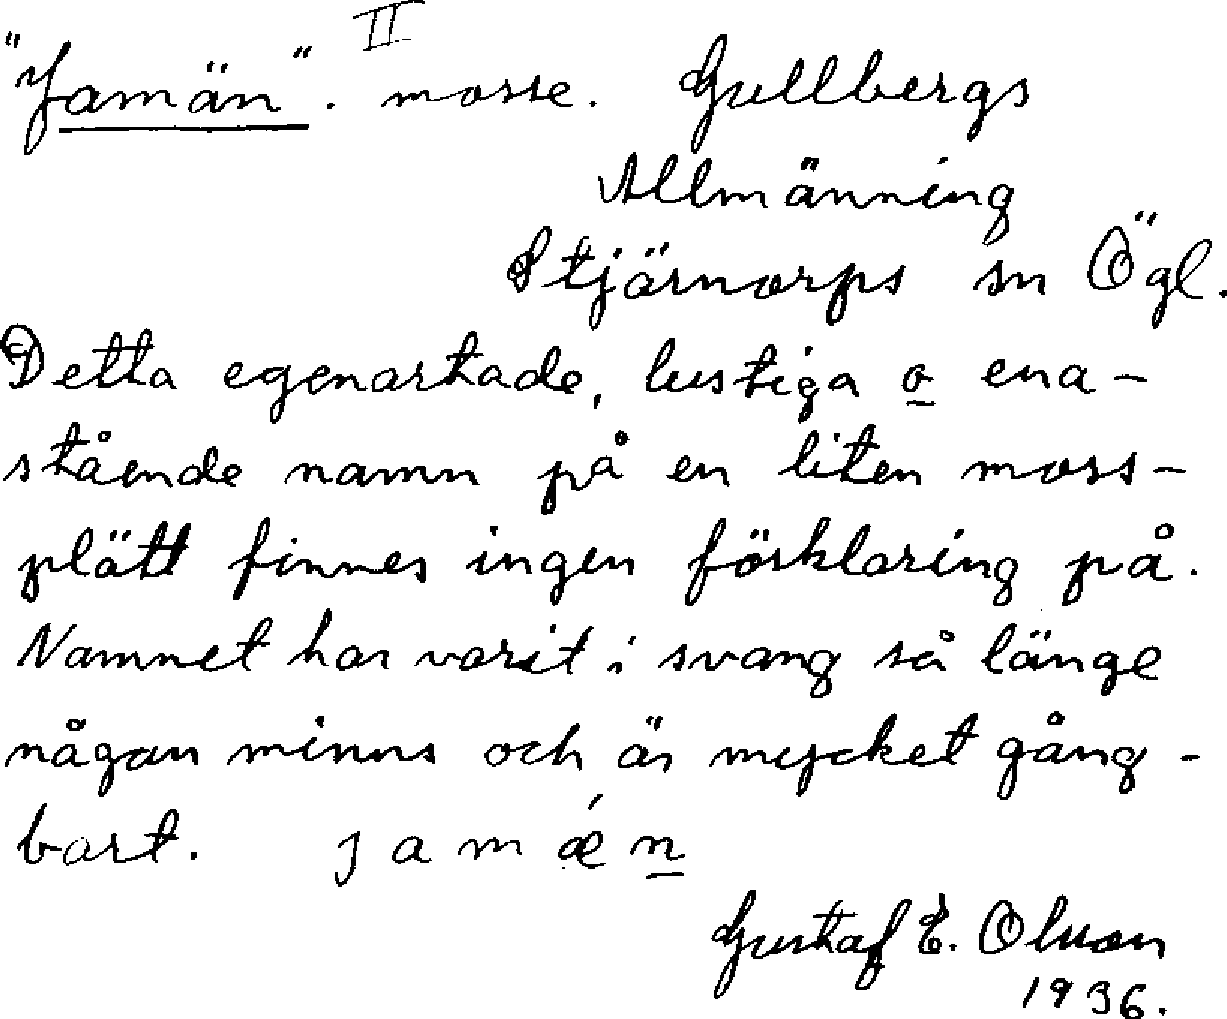 II
"Jamän". mosse. Gullbergs
Allmänning
Stjärnorps sn Ögl.
Detta egenartade, lustiga o ena-
stående namn på en liten moss-
plätt finnes ingen förklaring på.
Namnet har varit i svang så länge
någon minns och är mycket gång-
bart. j a m ǽ n
Gustaf E. Olsson
1936.